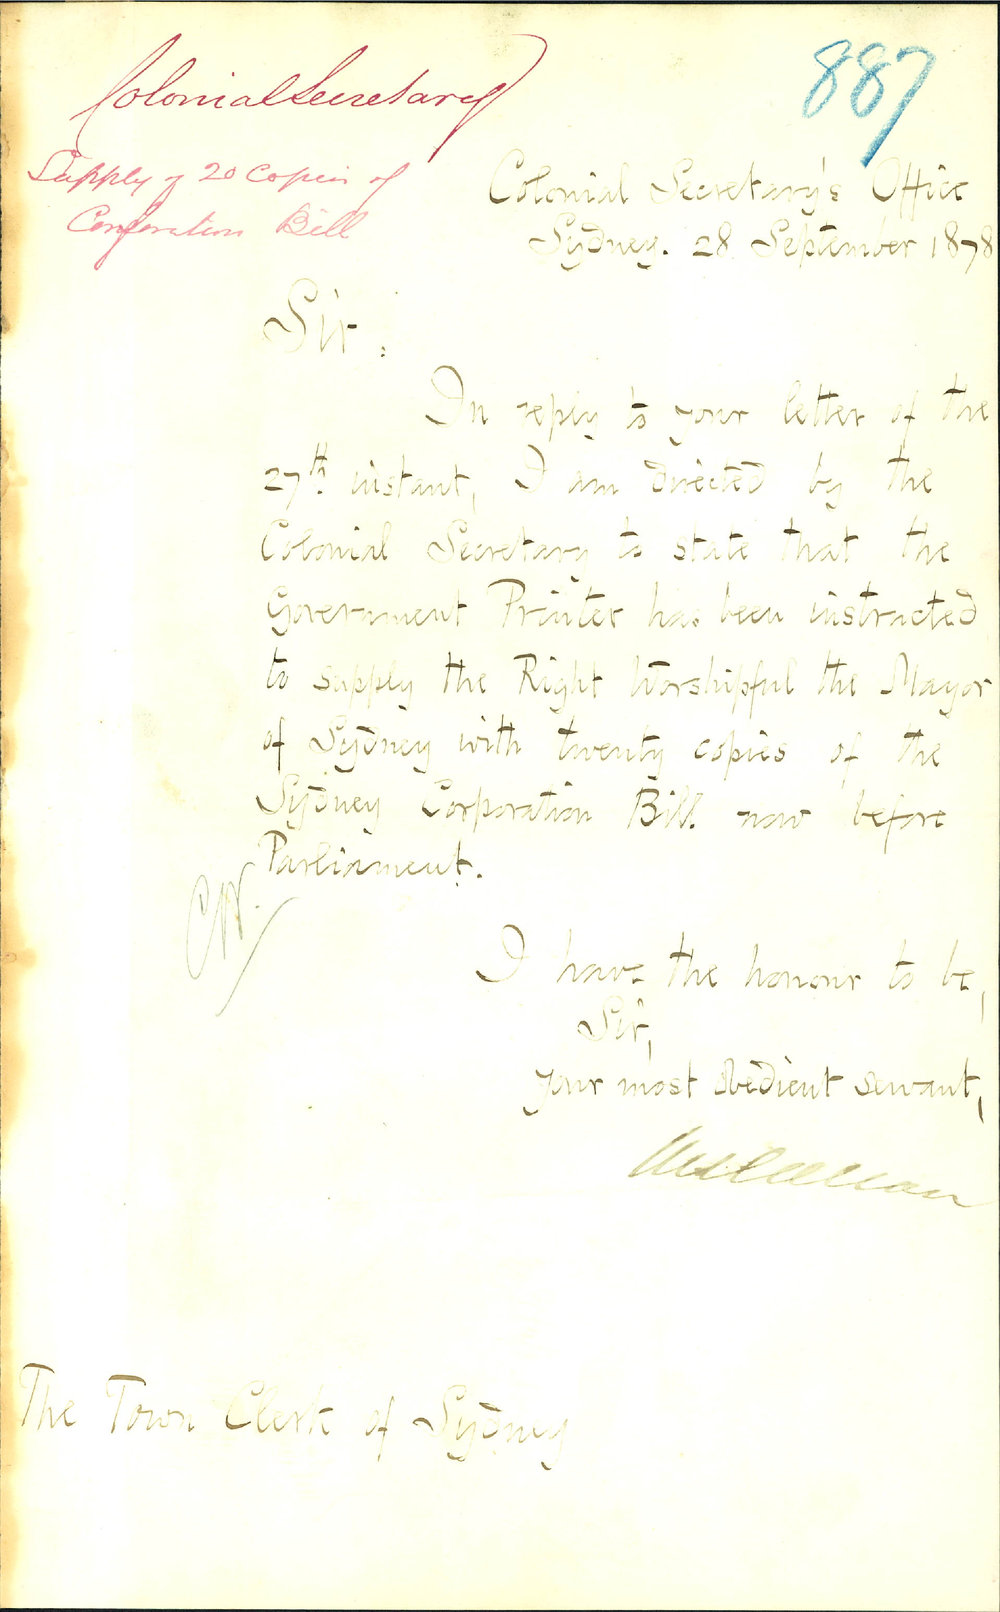 Colonial Secretary
887
Supply of 20 Copies of
Corporation Bill
Colonial Secretary's Office
Sydney. 28 September 1878
Sir,
In reply to your letter of the
27th instant, I am directed by the
Colonial Secretary to state that the
Government Printer has been instructed
to supply the Right Worshipful the Mayor
of Sydney with twenty copies of the
Sydney Corporation Bill now before
Parliament.
I have the honour to be,
Sir,
your most obedient servant,
The Town Clerk of Sydney